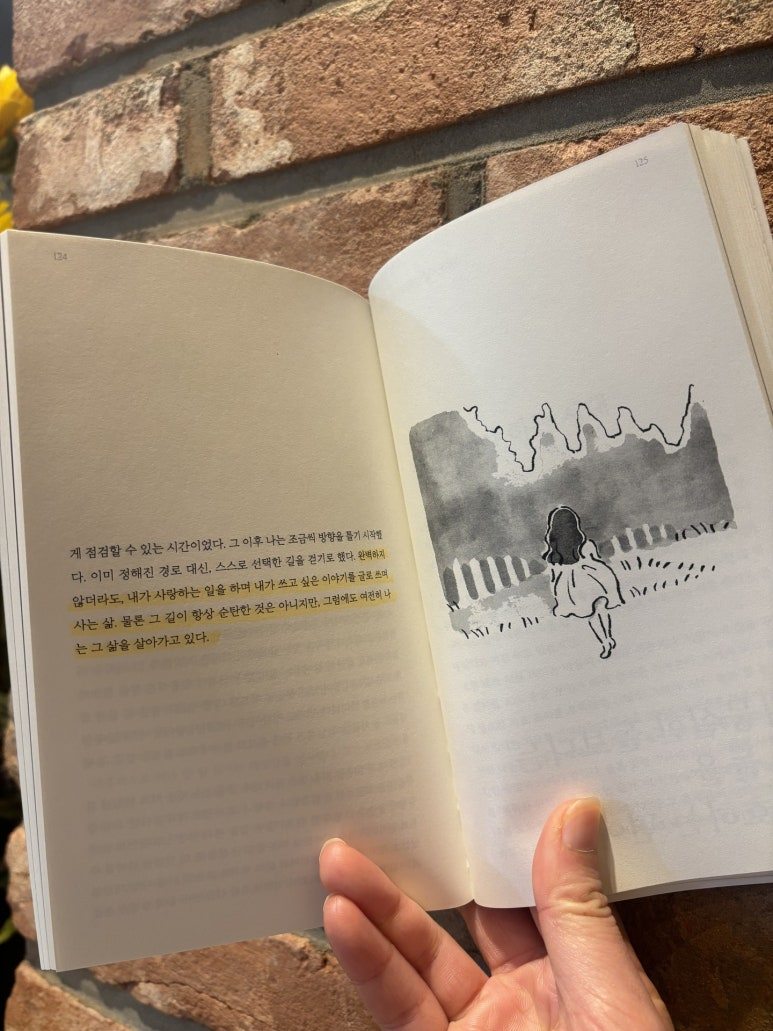 124
게 점검할 수 있는 시간이었다. 그 이후 나는 조금씩 방향을 틀기 시작했
다. 이미 정해진 경로 대신, 스스로 선택한 길을 걷기로 했다. 완벽하지
않더라도, 내가 사랑하는 일을 하며 내가 쓰고 싶은 이야기를 글로 쓰며
사는 삶. 물론 그 길이 항상 순탄한 것은 아니지만, 그럼에도 여전히 나
는 그 삶을 살아가고 있다.
125